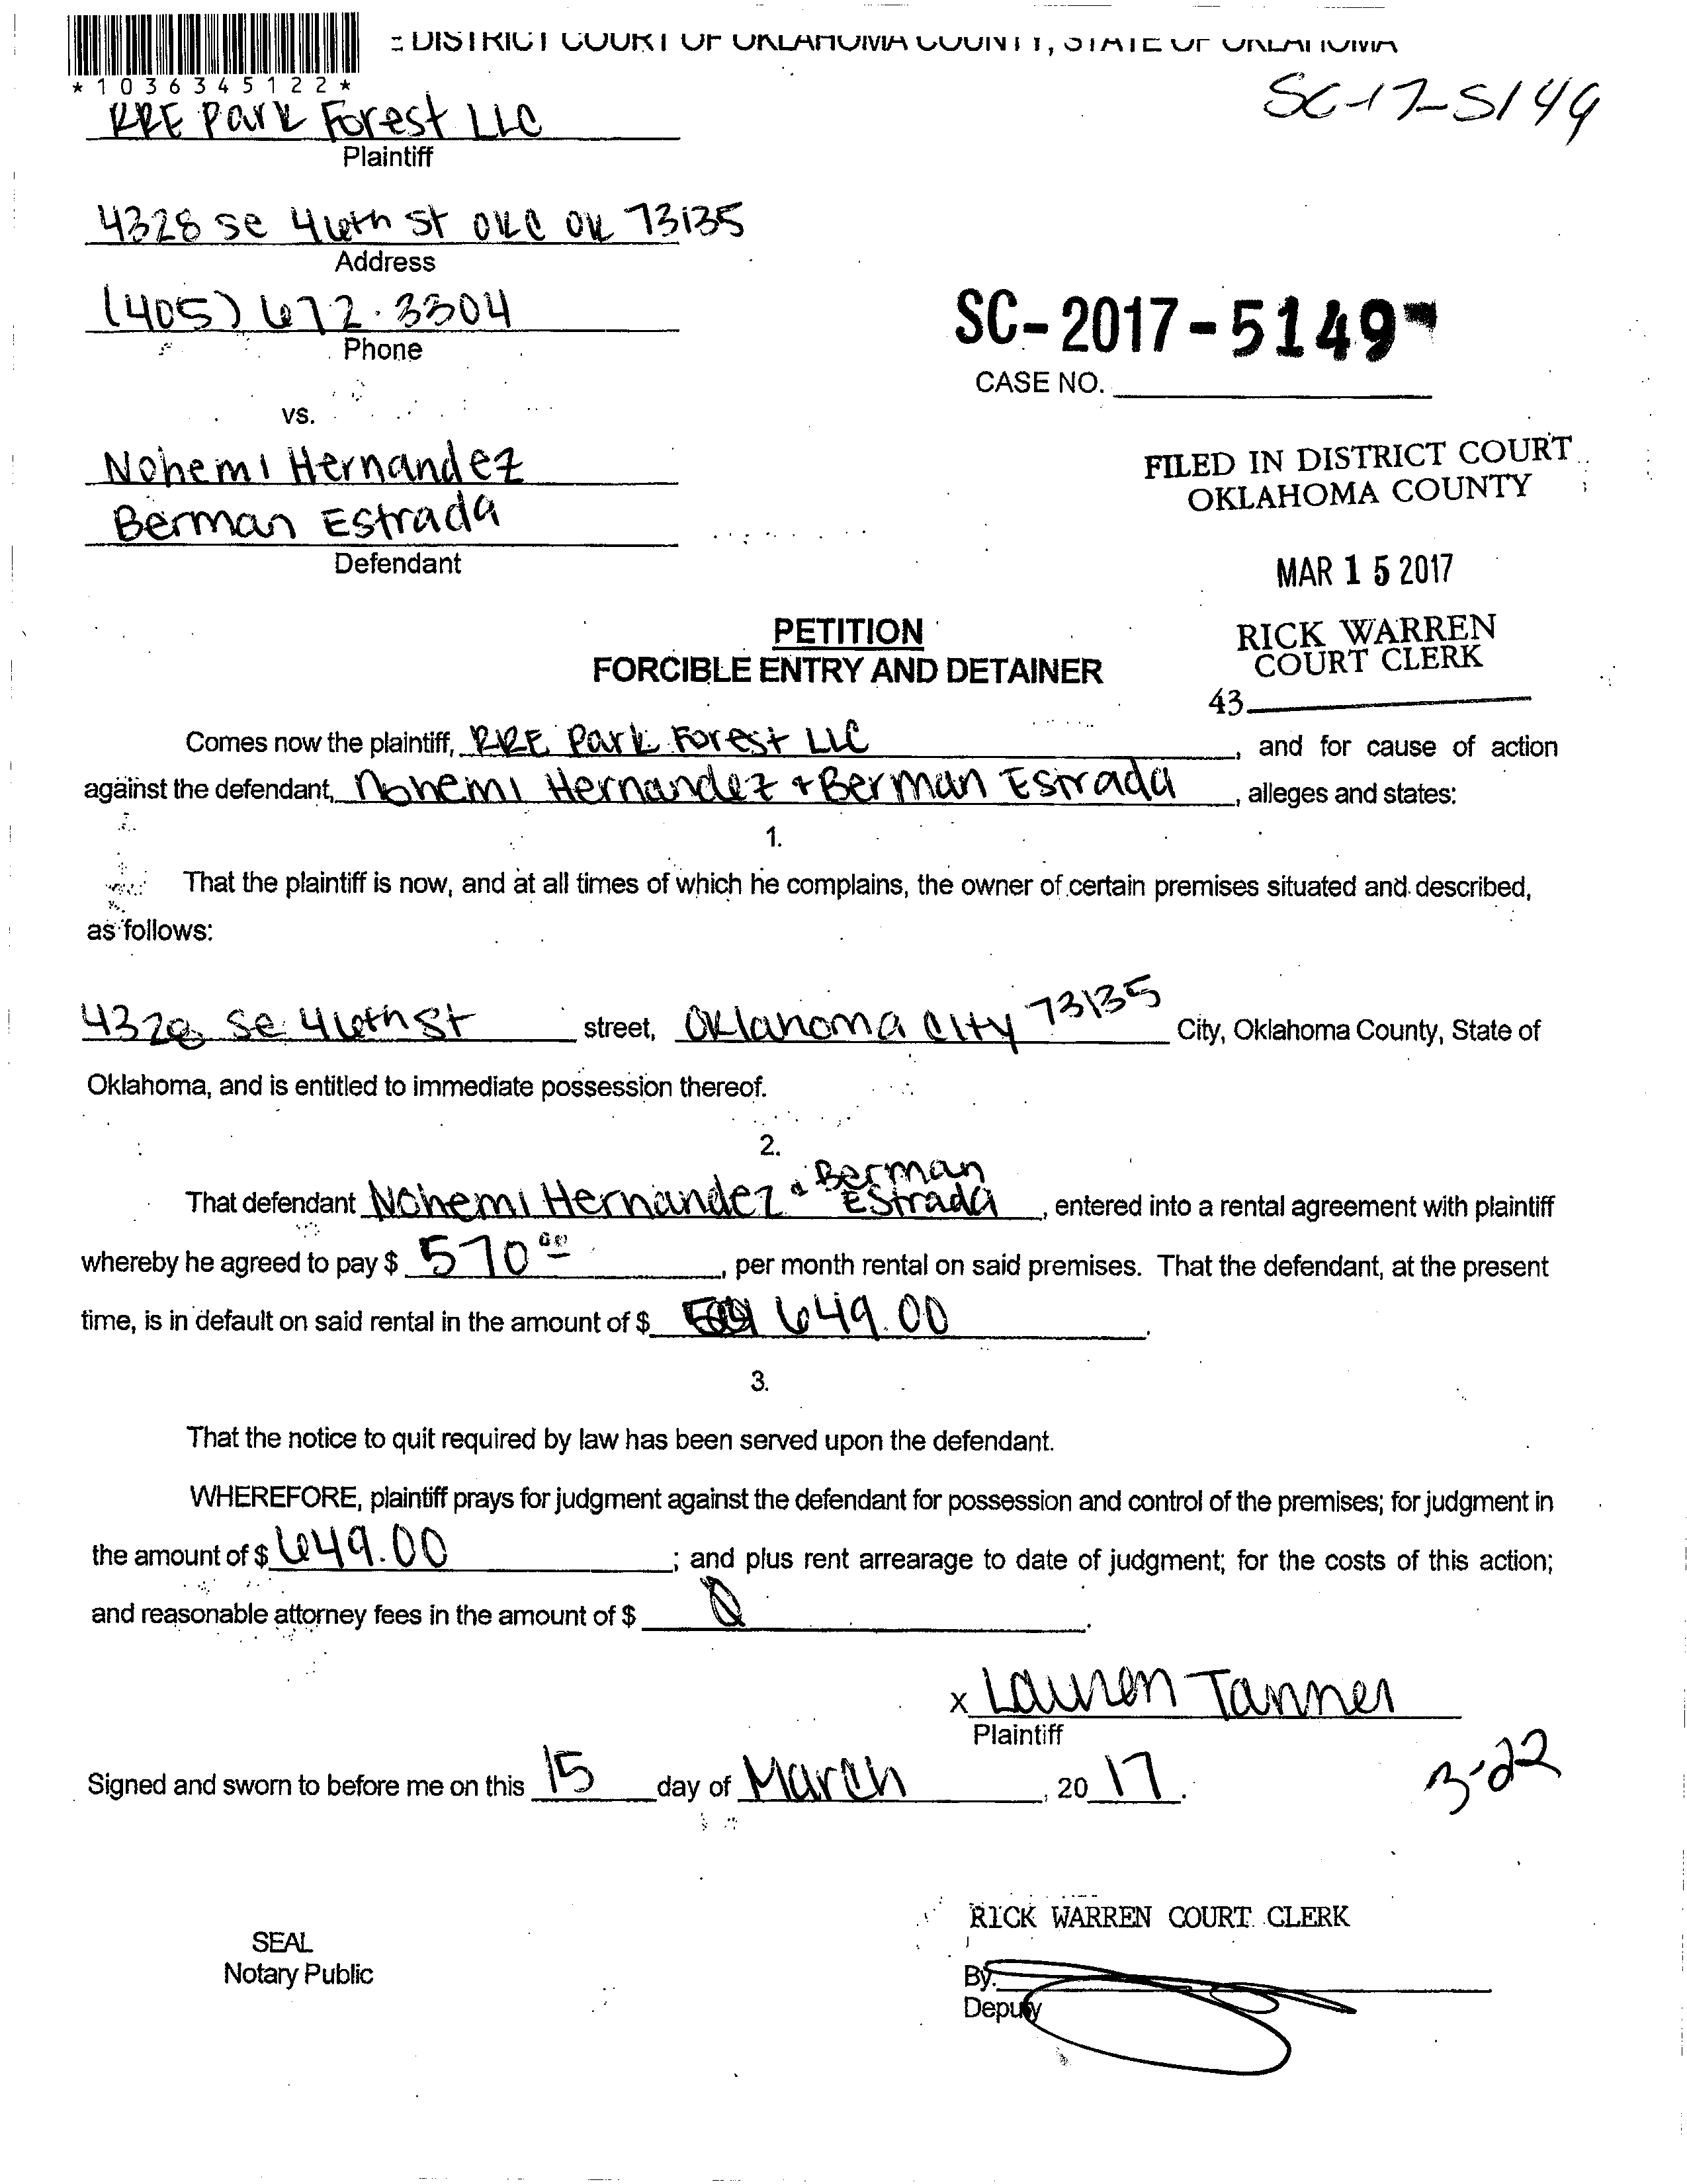 DISTRICT COURT OF OKLAHOMA COUNTY, STATE OF OKLAHOMA
*1036345122*
SC-17-5149
RRE Park Forest LLC
Plaintiff
4328 se 46th St OKC OK 73135
Address
(405) 672.3304
Phone
SC-2017-5149
CASE NO.
vs.
Nohemi Hernandez
Berman Estrada
Defendant
FILED IN DISTRICT COURT
OKLAHOMA COUNTY
MAR 15 2017
RICK WARREN
COURT CLERK
43
PETITION
FORCIBLE ENTRY AND DETAINER
Comes now the plaintiff, RRE Park Forest LLC, and for cause of action
against the defendant, Nohemi Hernandez + Berman Estrada, alleges and states:
1.
That the plaintiff is now, and at all times of which he complains, the owner of certain premises situated and described,
as follows:
4328 Se 46th St street, Oklahoma City 73135 City, Oklahoma County, State of
Oklahoma, and is entitled to immediate possession thereof.
2.
That defendant Nohemi Hernandez & Berman Estrada, entered into a rental agreement with plaintiff
whereby he agreed to pay $ 570 00, per month rental on said premises. That the defendant, at the present
time, is in default on said rental in the amount of $ 649.00.
3.
That the notice to quit required by law has been served upon the defendant.
WHEREFORE, plaintiff prays for judgment against the defendant for possession and control of the premises; for judgment in
the amount of $ 649.00; and plus rent arrearage to date of judgment; for the costs of this action;
and reasonable attorney fees in the amount of $ 0.
x Lauren Tanner
Plaintiff
Signed and sworn to before me on this 15 day of March, 20 17.
3-22
SEAL
Notary Public
RICK WARREN COURT CLERK
By.
Deputy